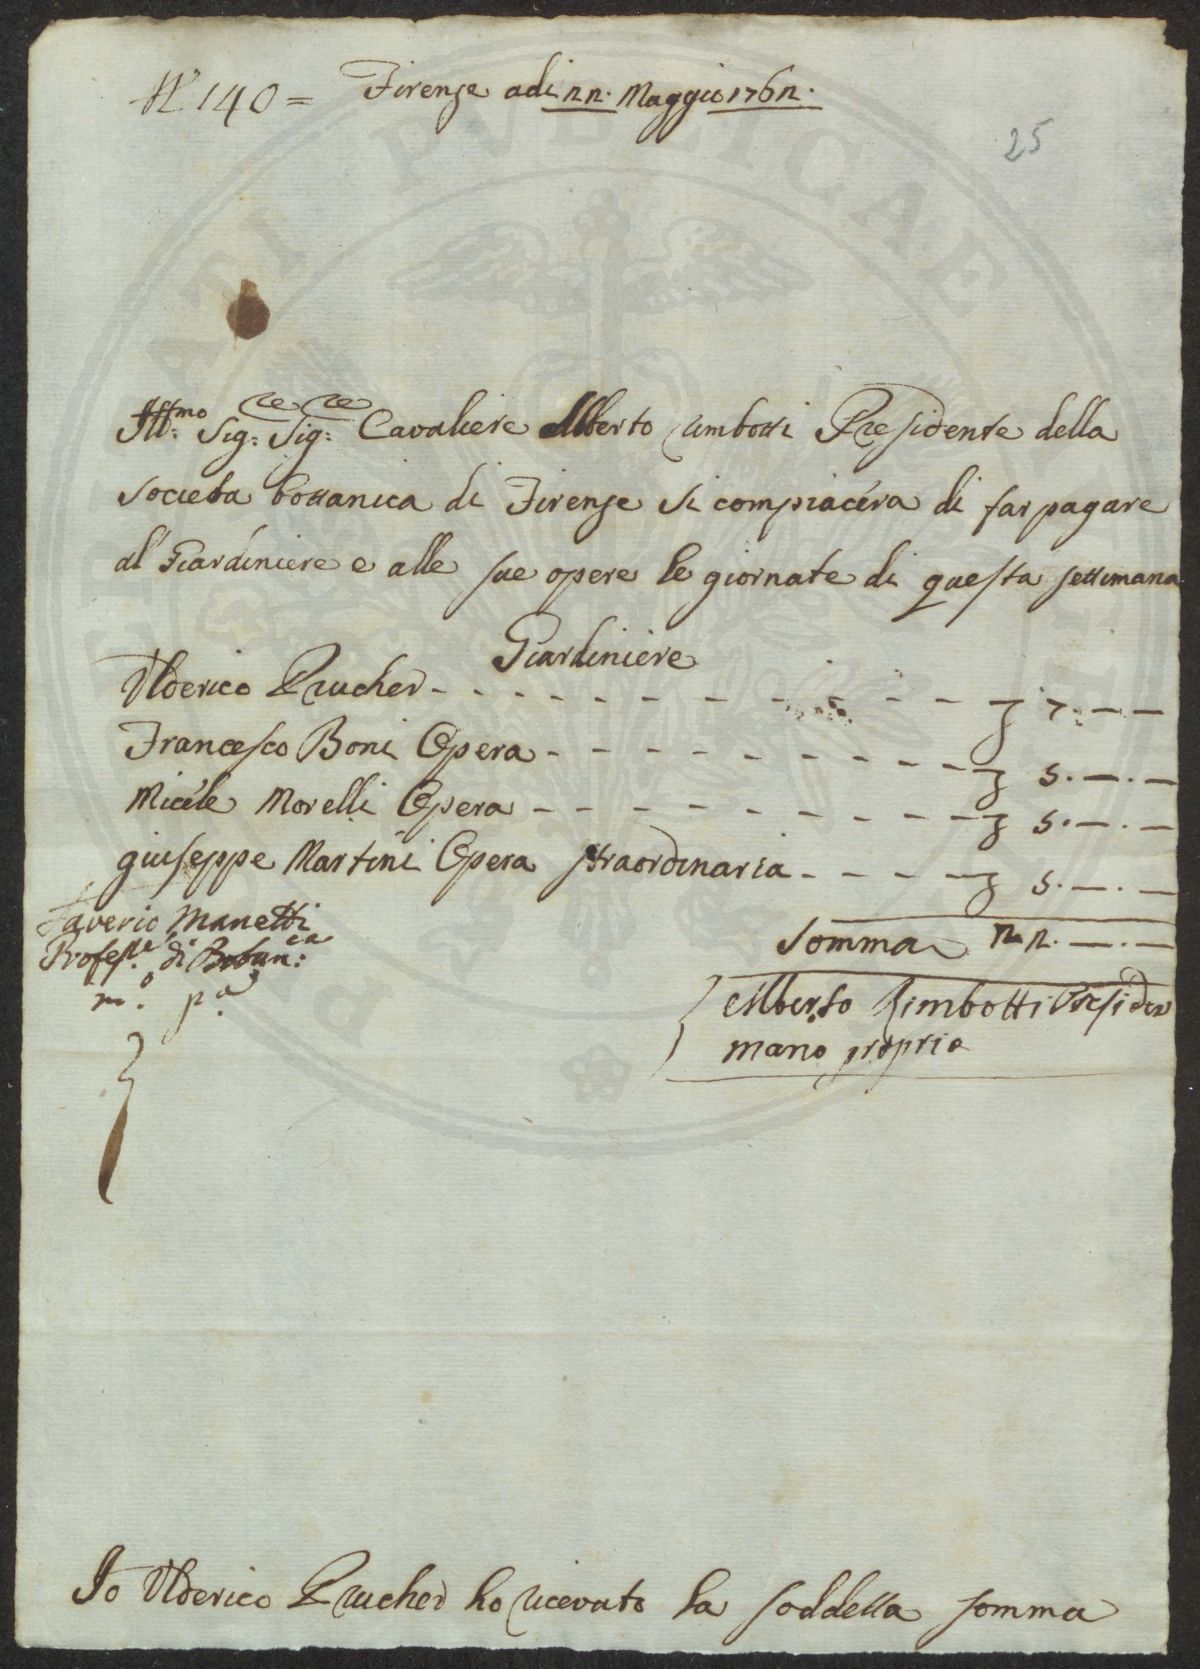 N.° 140 = Firenze adi 22. Maggio 1762.
25
Ill:mo Sig:re Sig:re Cavaliere Alberto rimbotti Presidente della
Societa bottanica di Firenze si compiacéra di far pagare
al Giardiniere e alle sue opere le giornate di questa settimana
Giardiniere
Ulderico Prucher - - - - - - - - - - £ 7. — —
Francesco Boni Opera - - - - - - - - - £ 5. —. —
Micéle Morelli Opera - - - - - - - - - £ 5. —. —
giuseppe Martini Opera straordinaria - - - - £ 5. —. —
Saverio Manetti
Somma 22. —. —
Profess.re di Botan:ca
m.° p.a
Alberto Rimbotti Presiden
mano propria
Io Ulderico Prucher ho ricevuto la soddetta somma